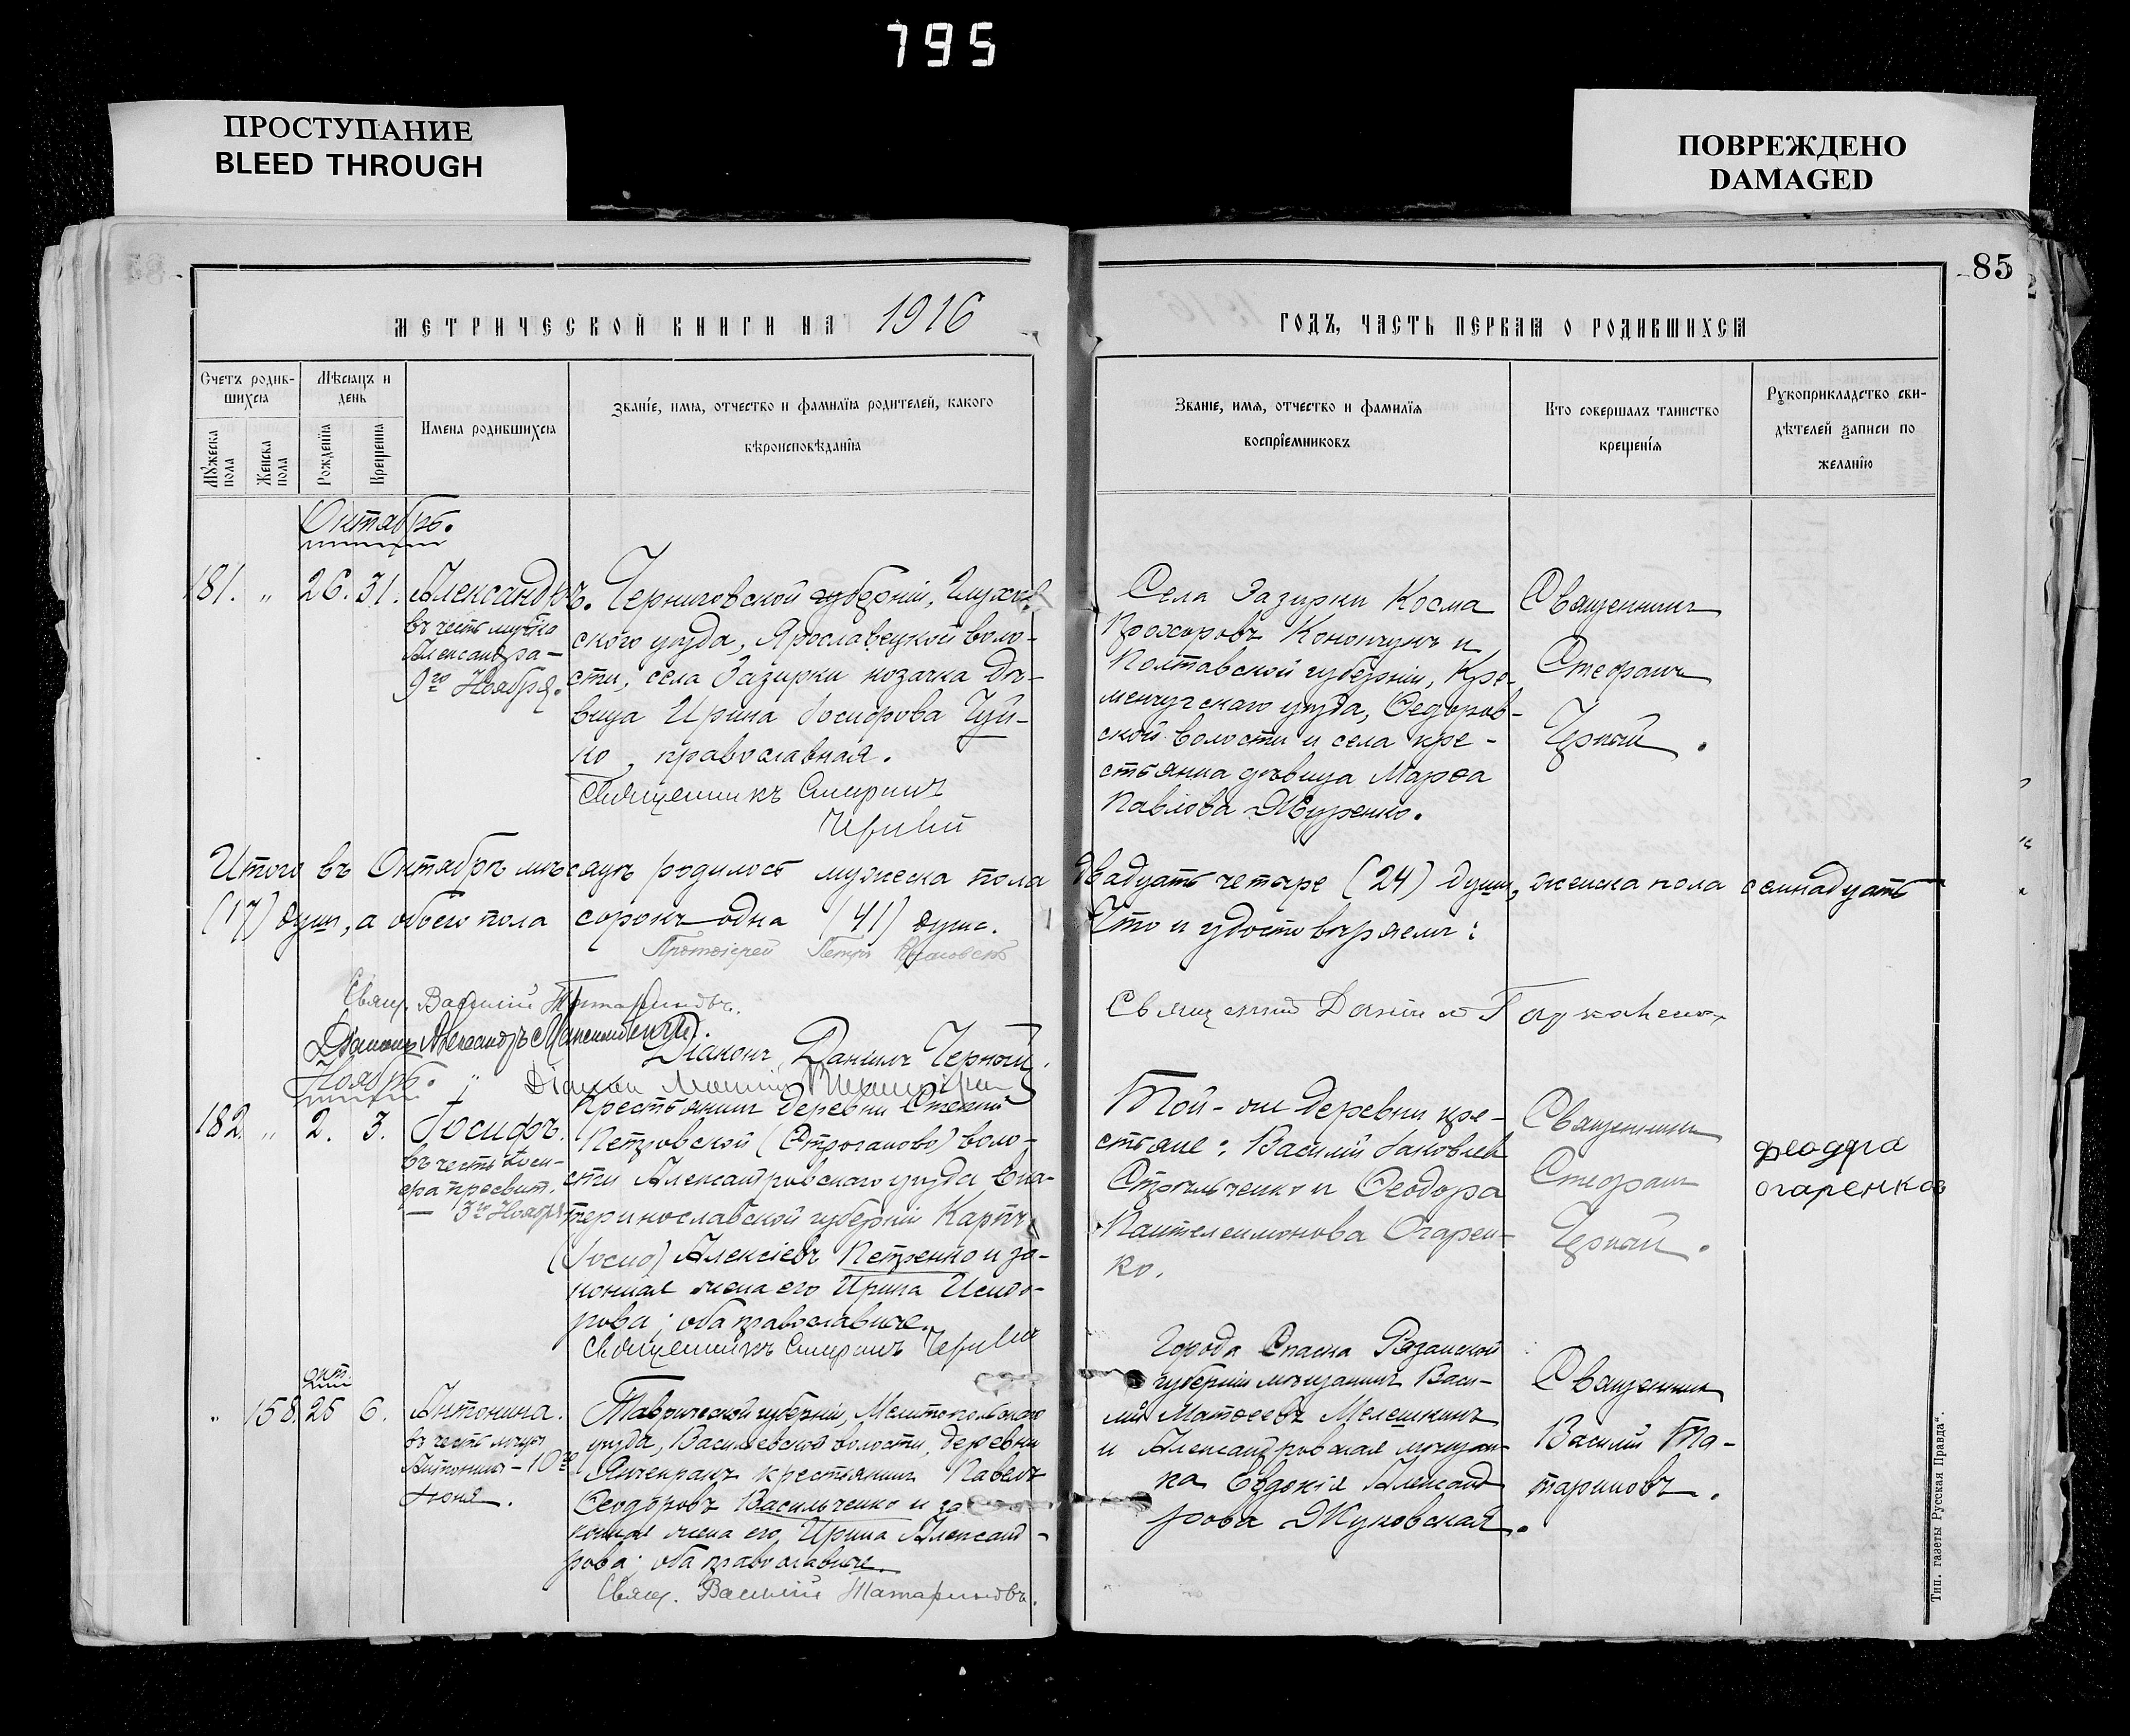 795
ПРОСТУПАНИЕ
BLEED THROUGH
ПОВРЕЖДЕНО
DAMAGED
85
МЕТРИЧЕСКОЙ КНИГИ НА 1916
ГОДЪ, ЧАСТЬ ПЕРВАЯ О РОДИВШИХСЯ
Счетъ родив-
шихся
Мѣсяцъ и
день
Мужеска
пола
Женска
пола
Рожденїя
Крещенїя
Имена родившихся
Званїе, имя, отчество и фамилїя родителей, какого
вѣроисповѣданїя
Званїе, имя, отчество и фамилїя
воспрїемниковъ
Кто совершалъ таинство
крещенїя
Рукоприкладство сви-
дѣтелей записи по
желанїю
Октябрь.
181. " 26. 31. Александръ.
въ честь муч-ка
Александра –
9го Ноября.
Черниговской губерніи, Глухов-
ского уѣзда, Ярославецкой воло-
сти, села Зазирки козачка дѣ-
вица Ирина Іосифова Чуй-
ко, православная.
Священникъ Стефанъ
Черный
Села Зазирки Косма
Прохоровъ Конончукъ и
Полтавской губерніи, Кре-
менчугскаго уѣзда, Ѳедоров-
ской волости и села кре-
стьянка дѣвица Марѳа
Павлова Журенко.
Священникъ
Стефанъ
Черный.
Итого въ Октябрѣ мѣсяцѣ родилось мужеска пола двадцать четыре (24) душ, женска пола семнадцать
(17) душ, а обоего пола сорокъ одна (41) душа. Что и удостовѣряемъ:
Протоіерей Петръ
Свящ. Василій Татариновъ.
Священникъ Даніилъ
Діаконъ Александръ
Діаконъ Даніилъ Черный.
Ноябрь.
Діаконъ
182. " 2. 3. Іосифъ.
въ честь Іоси-
фа пресвит.
– 3го Ноября
Крестьянинъ деревни Степной
Петровской (Строганово) воло-
сти Александровскаго уѣзда Ека-
теринославской губерніи Карпъ
Алексіевъ Петренко и за-
конная жена его Ирина Исидо-
рова; оба православные.
Священникъ Стефанъ Черный
Той-же деревни кре-
стьяне: Василій Іаковлев
Стрѣльченко и Ѳеодора
Пантелеимонова Огарен-
ко.
Священникъ
Стефанъ
Черный.
феодора
огаренкова
окт.
" 158. 25 6. Антонина.
въ честь муч-
Антонины – 10го
Іюня.
Таврической губерніи, Мелитопольскаго
уѣзда, Васильевской волости, деревни
Янчекракъ крестьянинъ Павелъ
Ѳеодоровъ Васильченко и за-
конная жена его Ирина Александ-
рова; оба православные.
Свящ. Василій Татариновъ.
Города Спаска Рязанской
губерніи мѣщанинъ Васи-
лій Матѳеевъ Мелешкинъ
и Александровская мѣщан-
ка Евдокія Александ
рова Жуковская.
Священник
Василій Та-
тариновъ.
Тип. газеты Русская Правда“.